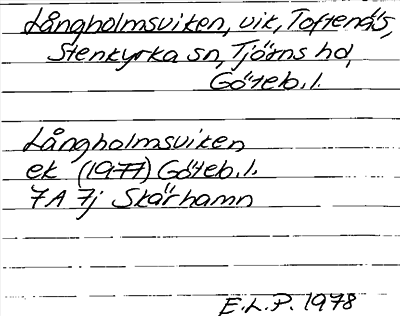 Långholmsviken, vik, Toftenäs,
Stenkyrka sn, Tjörns hd,
Göteb. l.
Långholmsviken
ek (1977) Göteb. l.
7A 7j Skärhamn
E.L.P. 1978